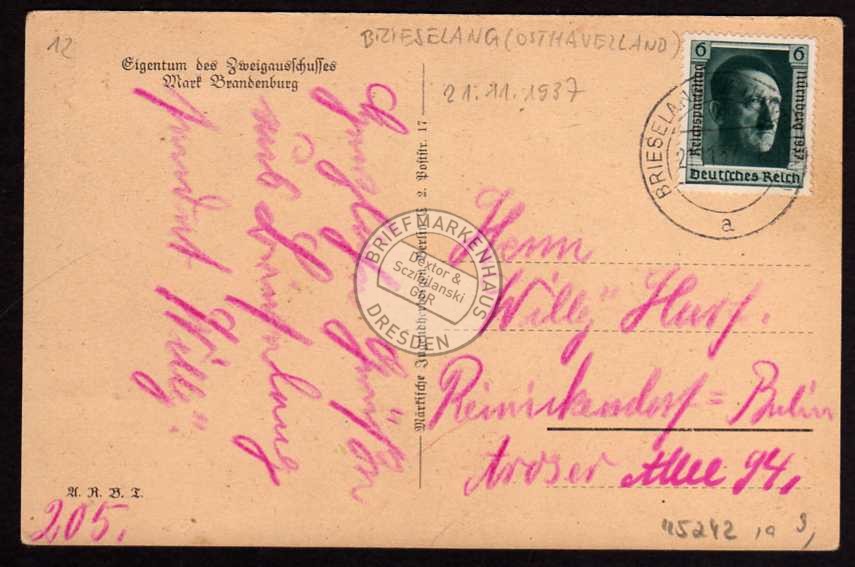 12
BRIESELANG (OSTHAVELLAND)
21.11.1937
Eigentum des Zweigausschusses
Mark Brandenburg
6 6
Reichsparteitag
Nürnberg 1937
Deutsches Reich
BRIESELAN
a
2. Poststr. 17
Märkische
Berlin
BRIEFMARKENHAUS
Dextor &
GbR
DRESDEN
aus Brieselang
Willy.
Herrn
"Willy" Harf.
Reinickendorf = Berlin
Aroser Allee 94,
A. R. B. T.
205.
45242